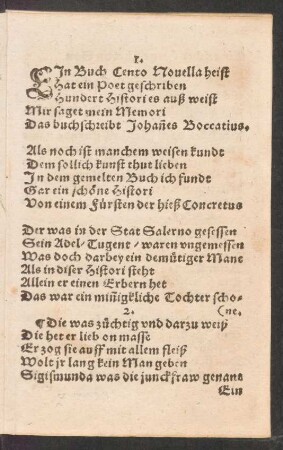 1.
EIn Buch Cento Nouella heist
Hat ein Poet geschriben
Hundert Histori es auß weist
Mir saget mein Memori
Das buch schreibt Johañes Boccatius.
Als noch ist manchem weisen kundt
Dem sollich kunst thut lieben
In dem gemelten Buch ich fundt
Gar ein schöne Histori
Von einem Fürsten der hieß Concretus
Der was in der Stat Salerno gesessen
Sein Adel/ Tugent/ waren vngemessen
Was doch darbey ein demütiger Mane
Als in diser Histori steht
Allein er einen Erben het
Das war ein miñigkliche Tochter scho-
2. (ne.
¶Die was züchtig vnd darzu weiß
Die het er lieb on masse
Er zog sie auff mit allem fleiß
Wolt jr lang kein Man geben
Sigismunda was die junckfraw genant
Ein